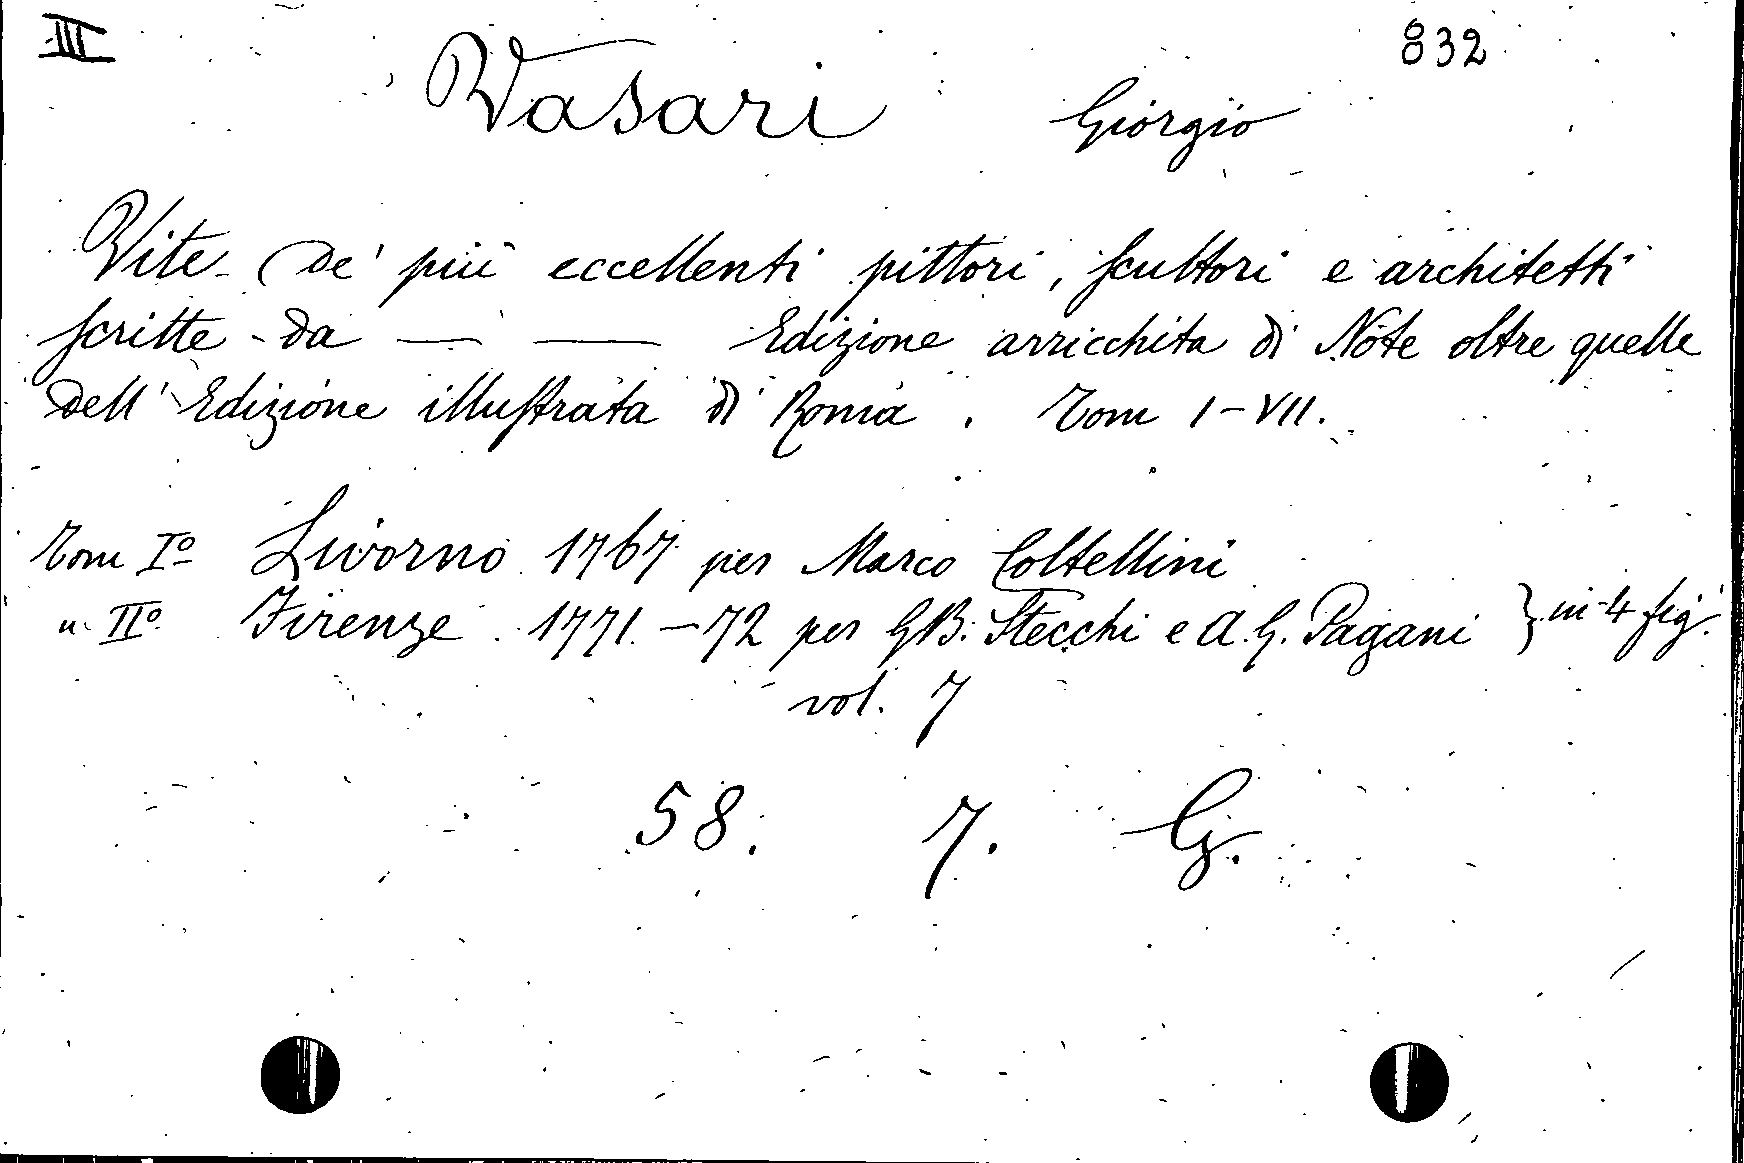 III 832
Vasari Giorgio
Vite de' più eccellenti pittori, scultori e architetti
scritte da — — Edizione arricchita di Note oltre quelle
dell' Edizione illustrata di Roma. Tom I-VII.
Tom Iº Livorno 1767 per Marco Coltellini
" IIº Firenze 1771-72 per GB. Stecchi e A. G. Pagani } in 4 fig.
vol. 7
58. 7. G.